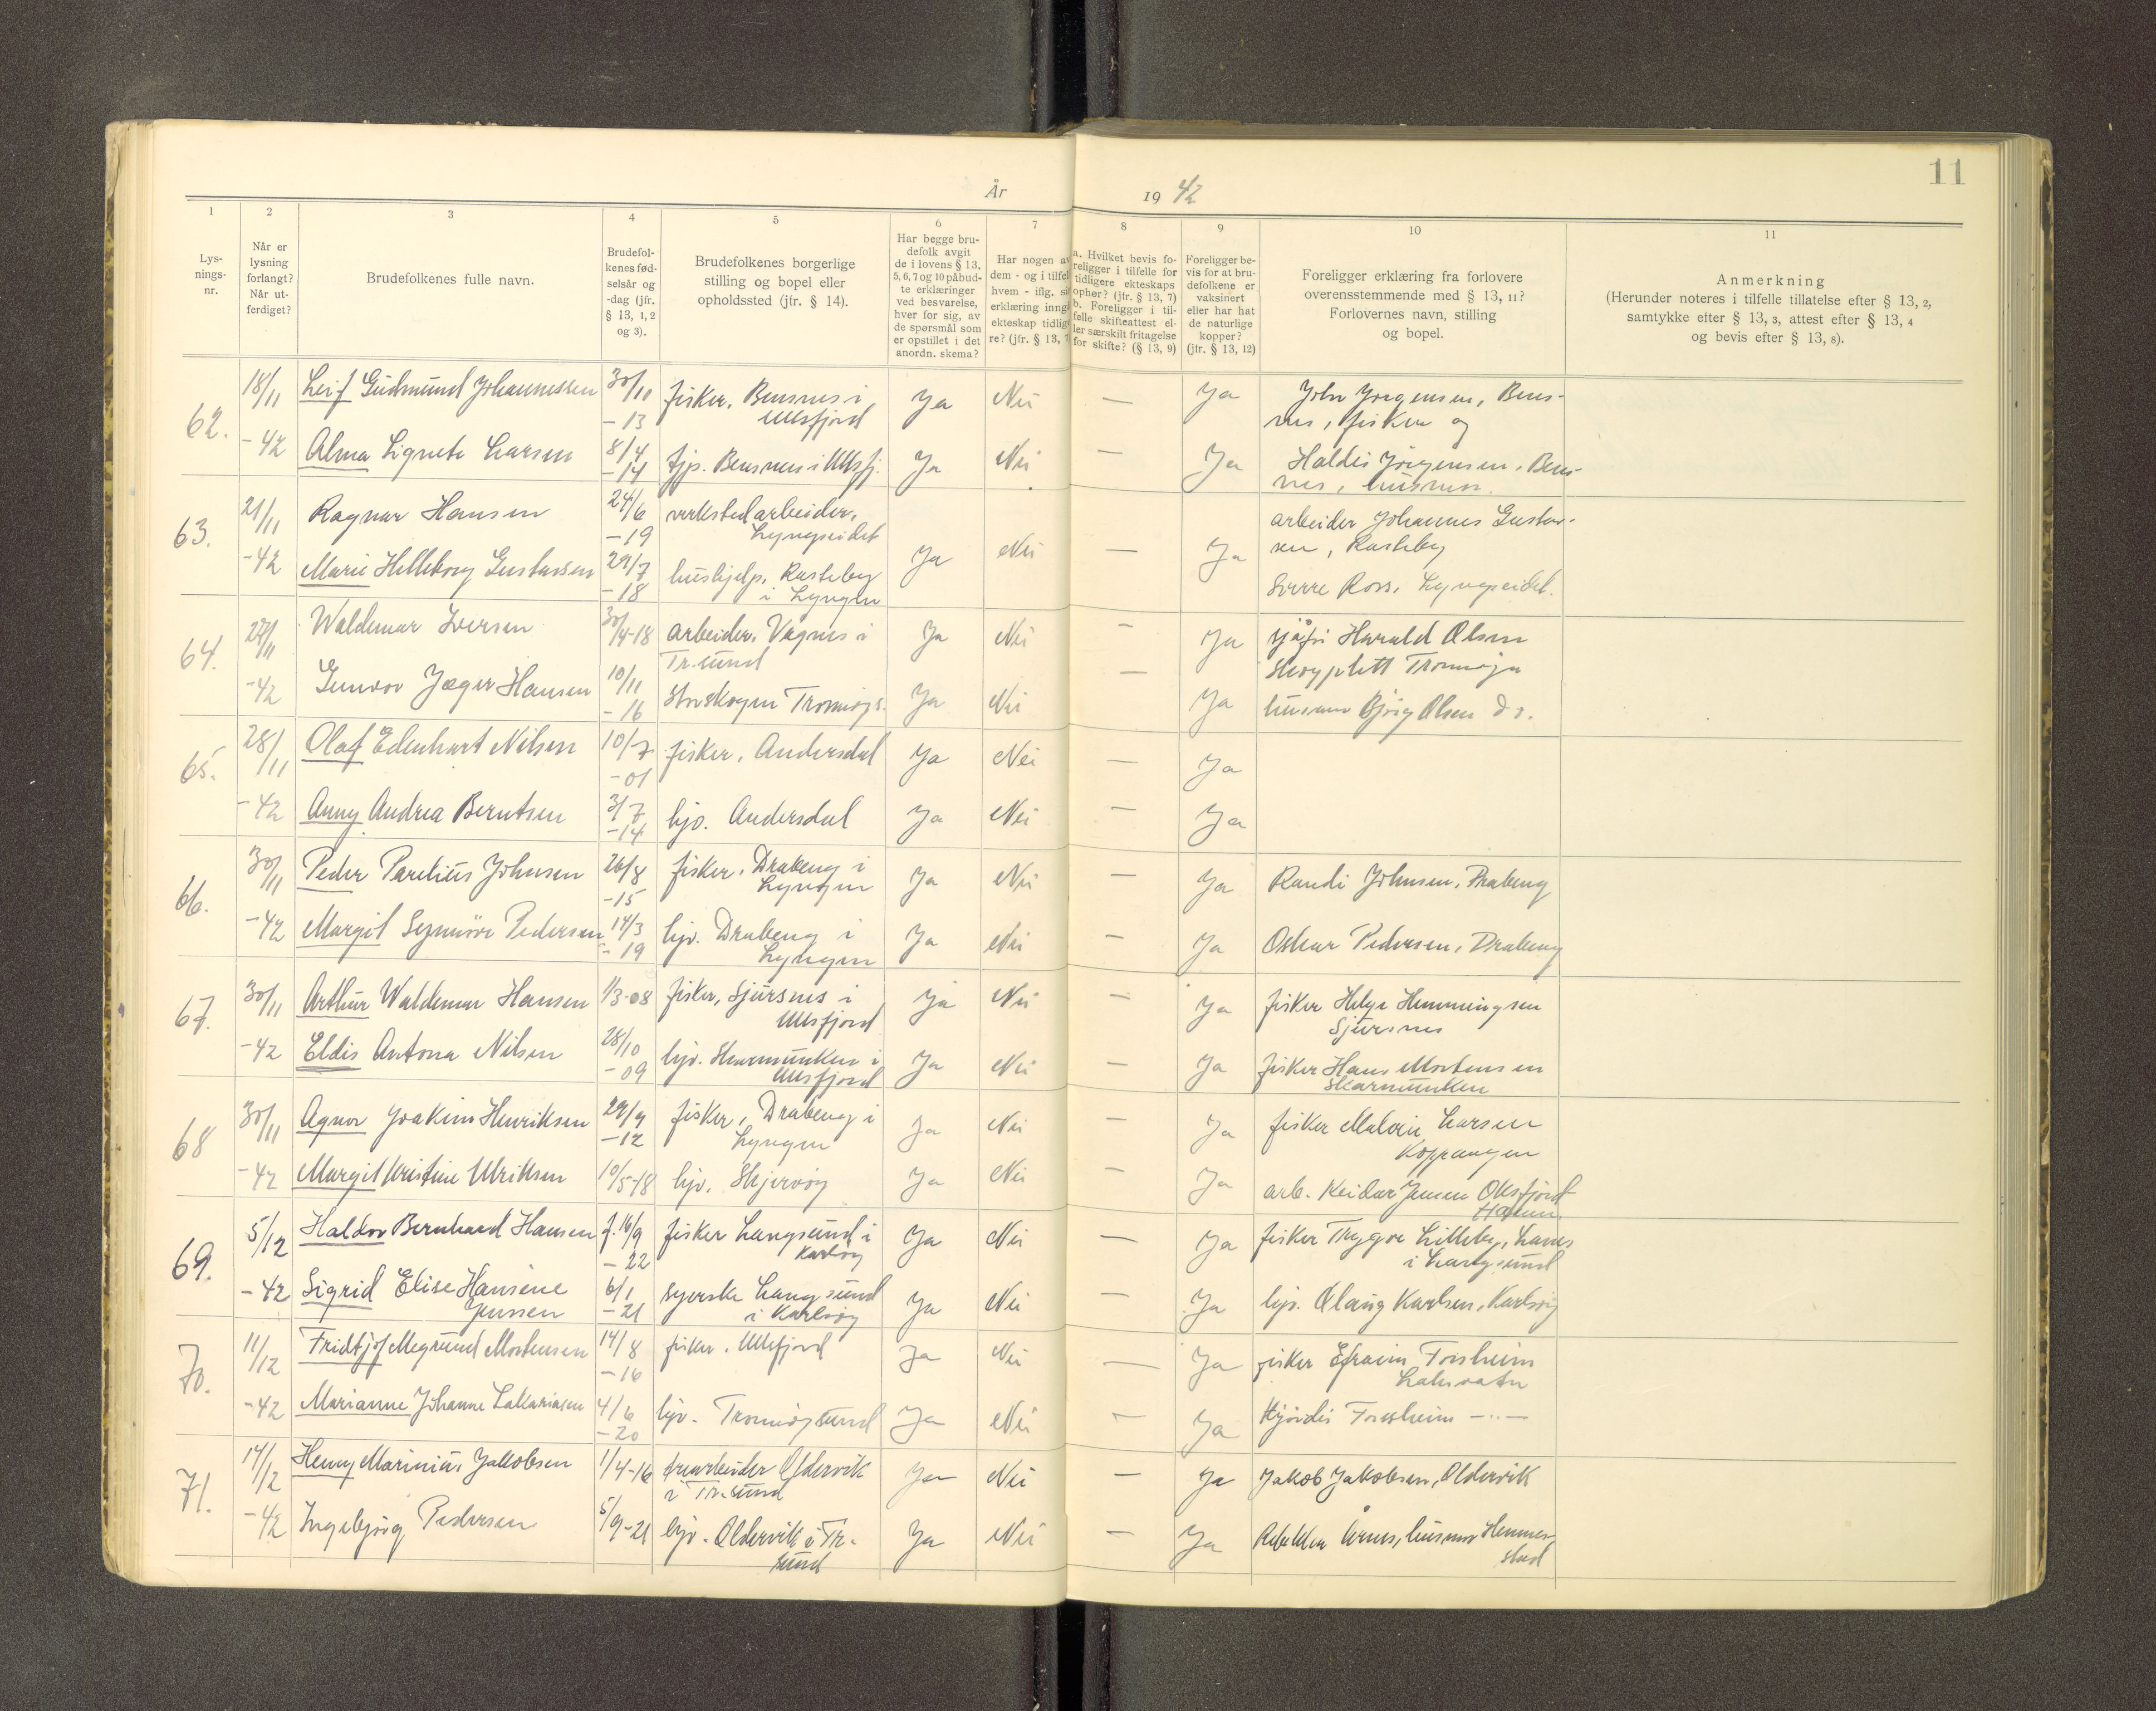 11
År 1942
1 2 3 4 5 6 7 8 9 10 11
Lys-
nings-
nr.
Når er
lysning
forlangt?
Når ut-
ferdiget?
Brudefolkenes fulle navn.
Brudefol-
kenes fød-
selsår og
-dag (jfr.
§ 13, 1, 2
og 3).
Brudefolkenes borgerlige
stilling og bopel eller
opholdssted (jfr. § 14).
Har begge bru-
defolk avgit
de i lovens § 13,
5, 6, 7 og 10 påbud-
te erklæringer
ved besvarelse,
hver for sig, av
de spørsmål som
er opstillet i det
anordn. skema?
Har nogen av
dem - og i tilfel
hvem - iflg. si
erklæring inng
ekteskap tidlig
re? (jfr. § 13, 7
a. Hvilket bevis fo-
religger i tilfelle for
tidligere ekteskaps
ophør? (jfr. § 13, 7)
b. Foreligger i til-
felle skifteattest el-
ler særskilt fritagelse
for skifte? (§ 13, 9)
Foreligger be-
vis for at bru-
defolkene er
vaksinert
eller har hat
de naturlige
kopper?
(jfr. § 13, 12)
Foreligger erklæring fra forlovere
overensstemmende med § 13, 11?
Forlovernes navn, stilling
og bopel.
Anmerkning
(Herunder noteres i tilfelle tillatelse efter § 13, 2,
samtykke efter § 13, 3, attest efter § 13, 4
og bevis efter § 13, 8).
62. 18/11 Leif Gudmund Johannessen 30/11 -13 fisker, Bensnes i Ullsfjord Ja Nei — Ja John Jørgensen, Bens-
nes, fisker og
-42 Alma Lignete Larsen 8/4 -14 hjp. Bensnes i Ullsfj. Ja Nei — Ja Haldis Jørgensen, Bens-
nes, husmor.
63. 21/11 Ragnar Hansen 24/6 -19 verkstedarbeider, Lyngseidet arbeider Johannes Gustav-
sen, Rasteby
-42 Marie Helleborg Gustavsen 29/7 -18 hushjelp, Rasteby i Lyngen Ja Nei — Ja Sverre Ross, Lyngseidet.
64. 27/11 Waldemar Iversen 30/4-18 arbeider, Vågnes i Tr.sund Ja Nei — Ja sjåfør Harald Olsen
Skogplett Tromsøya
-42 Gunvor Jæger Hansen 10/11 -16 Storskogen Tromsøys. Ja Nei — Ja husmor Bjørg Olsen do.
65. 28/11 Olaf Edenhart Nilsen 10/7 -01 fisker, Andersdal Ja Nei — Ja
-42 Anny Andrea Berntsen 3/7 -14 hjv. Andersdal Ja Nei — Ja
66. 30/11 Peder Parelius Johnsen 26/8 -15 fisker, Drabeng i Lyngen Ja Nei — Ja Randi Johnsen, Drabeng
-42 Margit Synnøve Pedersen 14/3 -19 hjv. Drabeng i Lyngen Ja Nei — Ja Oskar Pedersen, Drabeng
67. 30/11 Arthur Waldemar Hansen 1/3-08 fisker, Sjursnes i Ullsfjord Ja Nei — Ja fisker Helge Hemmingsen
Sjursnes
-42 Eldis Antona Nilsen 28/10 -09 hjv. Skarmunken i Ullsfjord Ja Nei — Ja fisker Hans Mortensen
Skarmunken
68 30/11 Agnor Joakim Henriksen 29/9 -12 fisker, Drabeng i Lyngen Ja Nei — Ja fisker Malvin Larsen
Koppangen
-42 Margit Kristine Ulriksen 10/5-18 hjv. Skjervøy Ja Nei — Ja arb. Reidar Jensen Oksfjord
Hamn
69. 5/12 Haldor Bernhard Hansen f. 16/9 -22 fisker Langsund i Karlsøy Ja Nei — Ja fisker Trygve Lilleby, Lanes
i Langsund
-42 Sigrid Elise Hansine Jenssen 6/1 -21 syerske Langsund i Karlsøy Ja Nei — Ja hjv. Olaug Karlsen, Karlsøy
70. 11/12 Fridtjof Megrund Mortensen 14/8 -16 fisker, Ullsfjord Ja Nei — Ja fisker Efraim Forsheim
Laksvatn
-42 Marianne Johanne Zakariasen 4/6 -20 hjv. Tromsøysund Ja Nei — Ja Hjørdis Forssheim —"—
71. 14/12 Henny Marinius Jakobsen 1/4-16 trearbeider Oldervik i Tr.sund Ja Nei — Ja Jakob Jakobsen, Oldervik
-42 Ingebjørg Pedersen 5/9-21 hjv. Oldervik i Tr.sund Ja Nei — Ja Rebekka Årnes, husmor Hennes-
stad